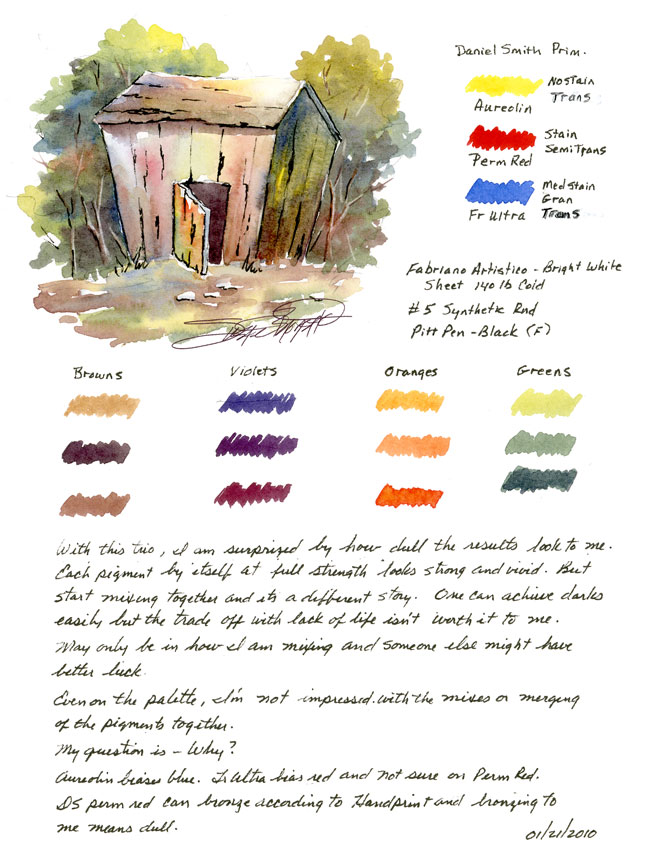 Daniel Smith Prim.
Aureolin
No Stain
Trans
Perm Red
Stain
Semi Trans
Fr Ultra
Med Stain
Gran
Trans
Fabriano Artistico - Bright White
Sheet 140 lb Cold
#5 Synthetic Rnd
Pitt Pen - Black (F)
Browns
Violets
Oranges
Greens
With this trio, I am surprized by how dull the results look to me.
Each pigment by itself at full strength looks strong and vivid. But
start mixing together and its a different story. One can achieve darks
easily but the trade off with lack of life isn't worth it to me.
May only be in how I am mixing and someone else might have
better luck.
Even on the palette, I'm not impressed with the mixes or merging
of the pigments together.
My question is - Why?
Aureolin biases blue. Fr Ultra bias red and not sure on Perm Red.
DS perm red can bronze according to Handprint and bronzing to
me means dull.
01/21/2010